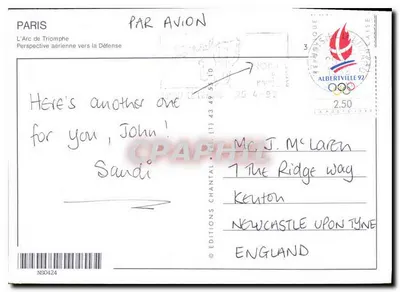 PARIS
L'Arc de Triomphe
Perspective aérienne vers la Défense
PAR AVION
RÉPUBLIQUE
FRANÇAISE
ALBERTVILLE 92
2,50
Here's another one
for you, John!
Sandi
© EDITIONS CHANTAL
(1) 43 49 55 10
CPAPHIL.com
Mr. J. McLaren
7 The Ridge Way
Kenton
NEWCASTLE UPON TYNE
ENGLAND
N30424